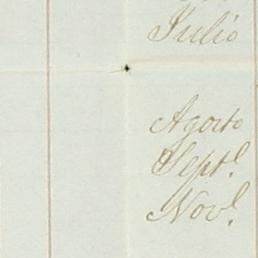 Julio
Agosto
Sept.
Nov.